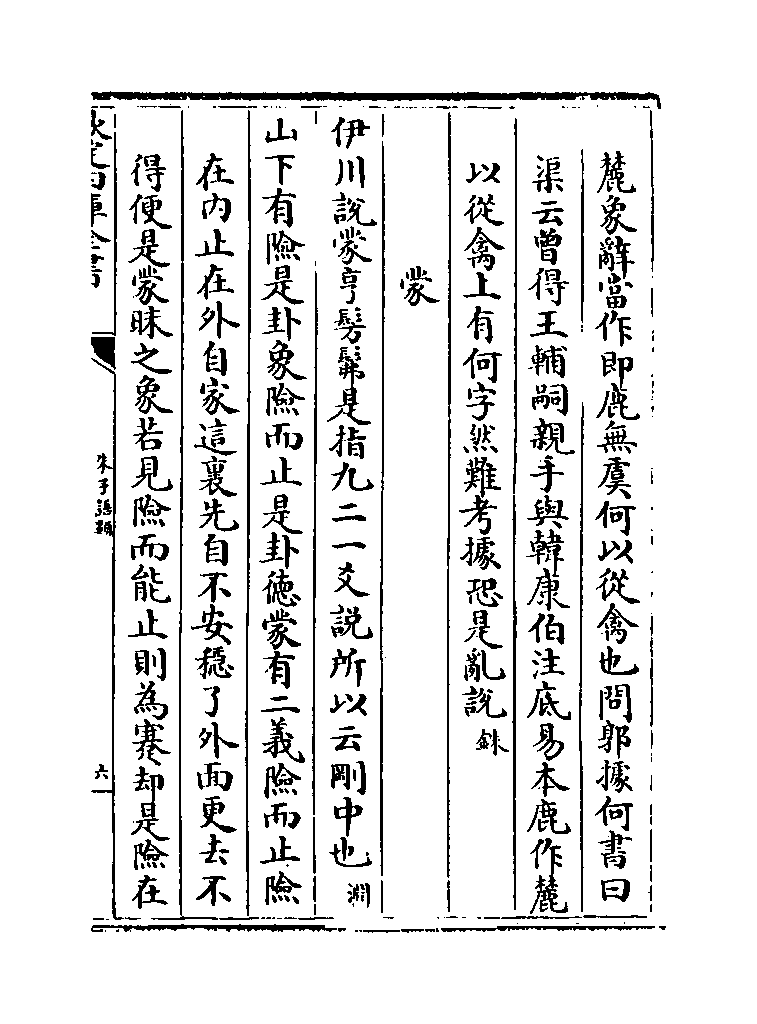 麓象辭當作即鹿無虞何以從禽也問郭據何書曰
渠云曾得王輔嗣親手與韓康伯注底易本鹿作麓
以從禽上有何字然難考據恐是亂説銖
蒙
伊川説蒙亨髣髴是指九二一爻説所以云剛中也淵
山下有險是卦象險而止是卦徳蒙有二義險而止險
在内止在外自家這裏先自不安穏了外面更去不
得便是蒙昧之象若見險而能止則為蹇却是險在
欽定四庫全書
朱子語類
六